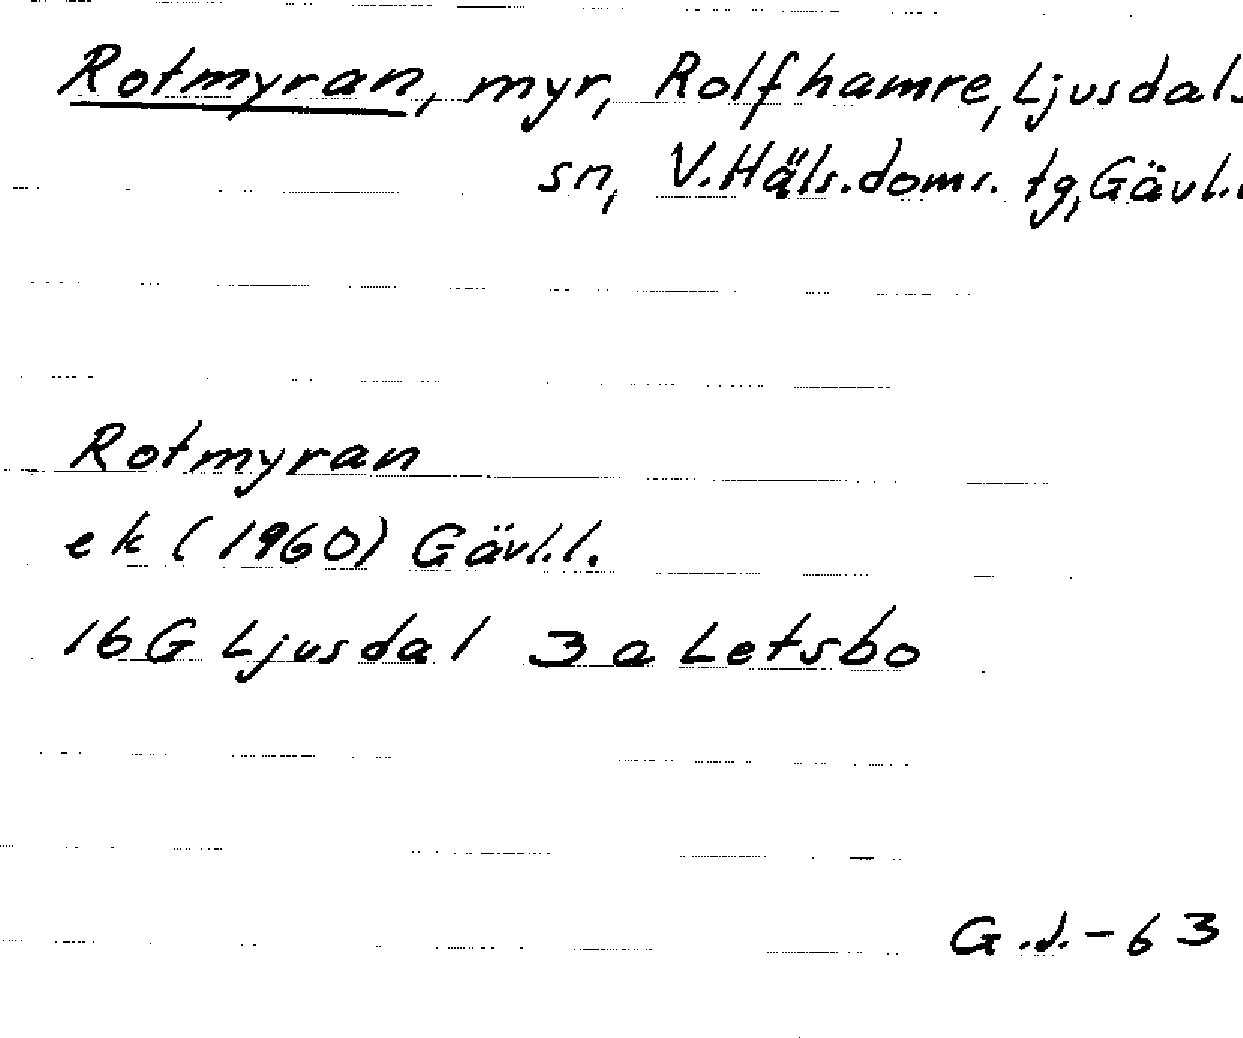 Rotmyran, myr, Rolfhamre, Ljusdals
sn, V. Häls. doms. tg, Gävl.
Rotmyran
ek (1960) Gävl.l.
16G Ljusdal 3a Letsbo
G.J.-63